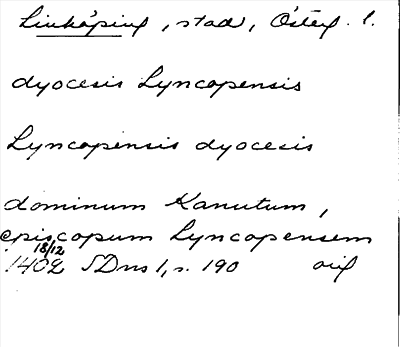 Linköping, stad, Österg. l.
dyocesis Lyncopensis
Lyncopensis dyocesis
dominum Kanutum,
episcopum Lyncopensem
18/12
1402 SDns 1, s. 190 oif